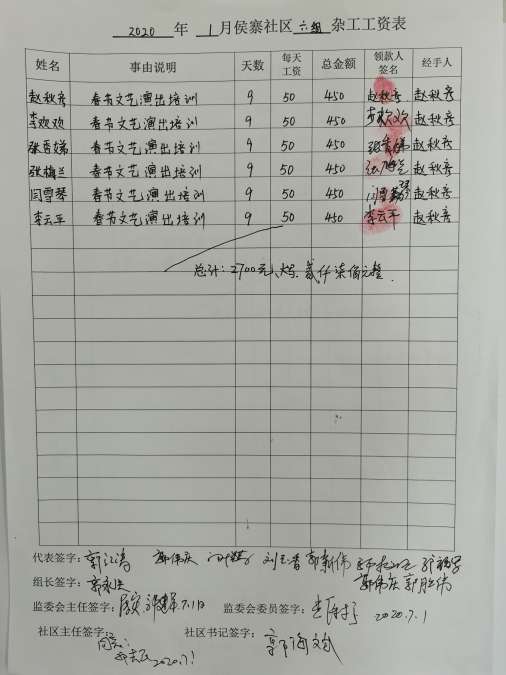 2020 年 1月侯寨社区 六组 杂工工资表
姓名 事由说明 天数 每天工资 总金额 领款人签名 经手人
赵秋彦 春节文艺演出培训 9 50 450 赵秋彦 赵秋彦
李欢欢 春节文艺演出培训 9 50 450 李欢欢 赵秋彦
张香娣 春节文艺演出培训 9 50 450 张香娣 赵秋彦
张梅兰 春节文艺演出培训 9 50 450 张梅兰 赵秋彦
闫雪琴 春节文艺演出培训 9 50 450 赵秋彦
李云平 春节文艺演出培训 9 50 450 李云平 赵秋彦
总计：2700元 大写：贰仟柒佰元整
代表签字：
组长签字：
监委会主任签字： 7.1日 监委会委员签字： 2020.7.1
社区主任签字： 社区书记签字：
2020.7.1